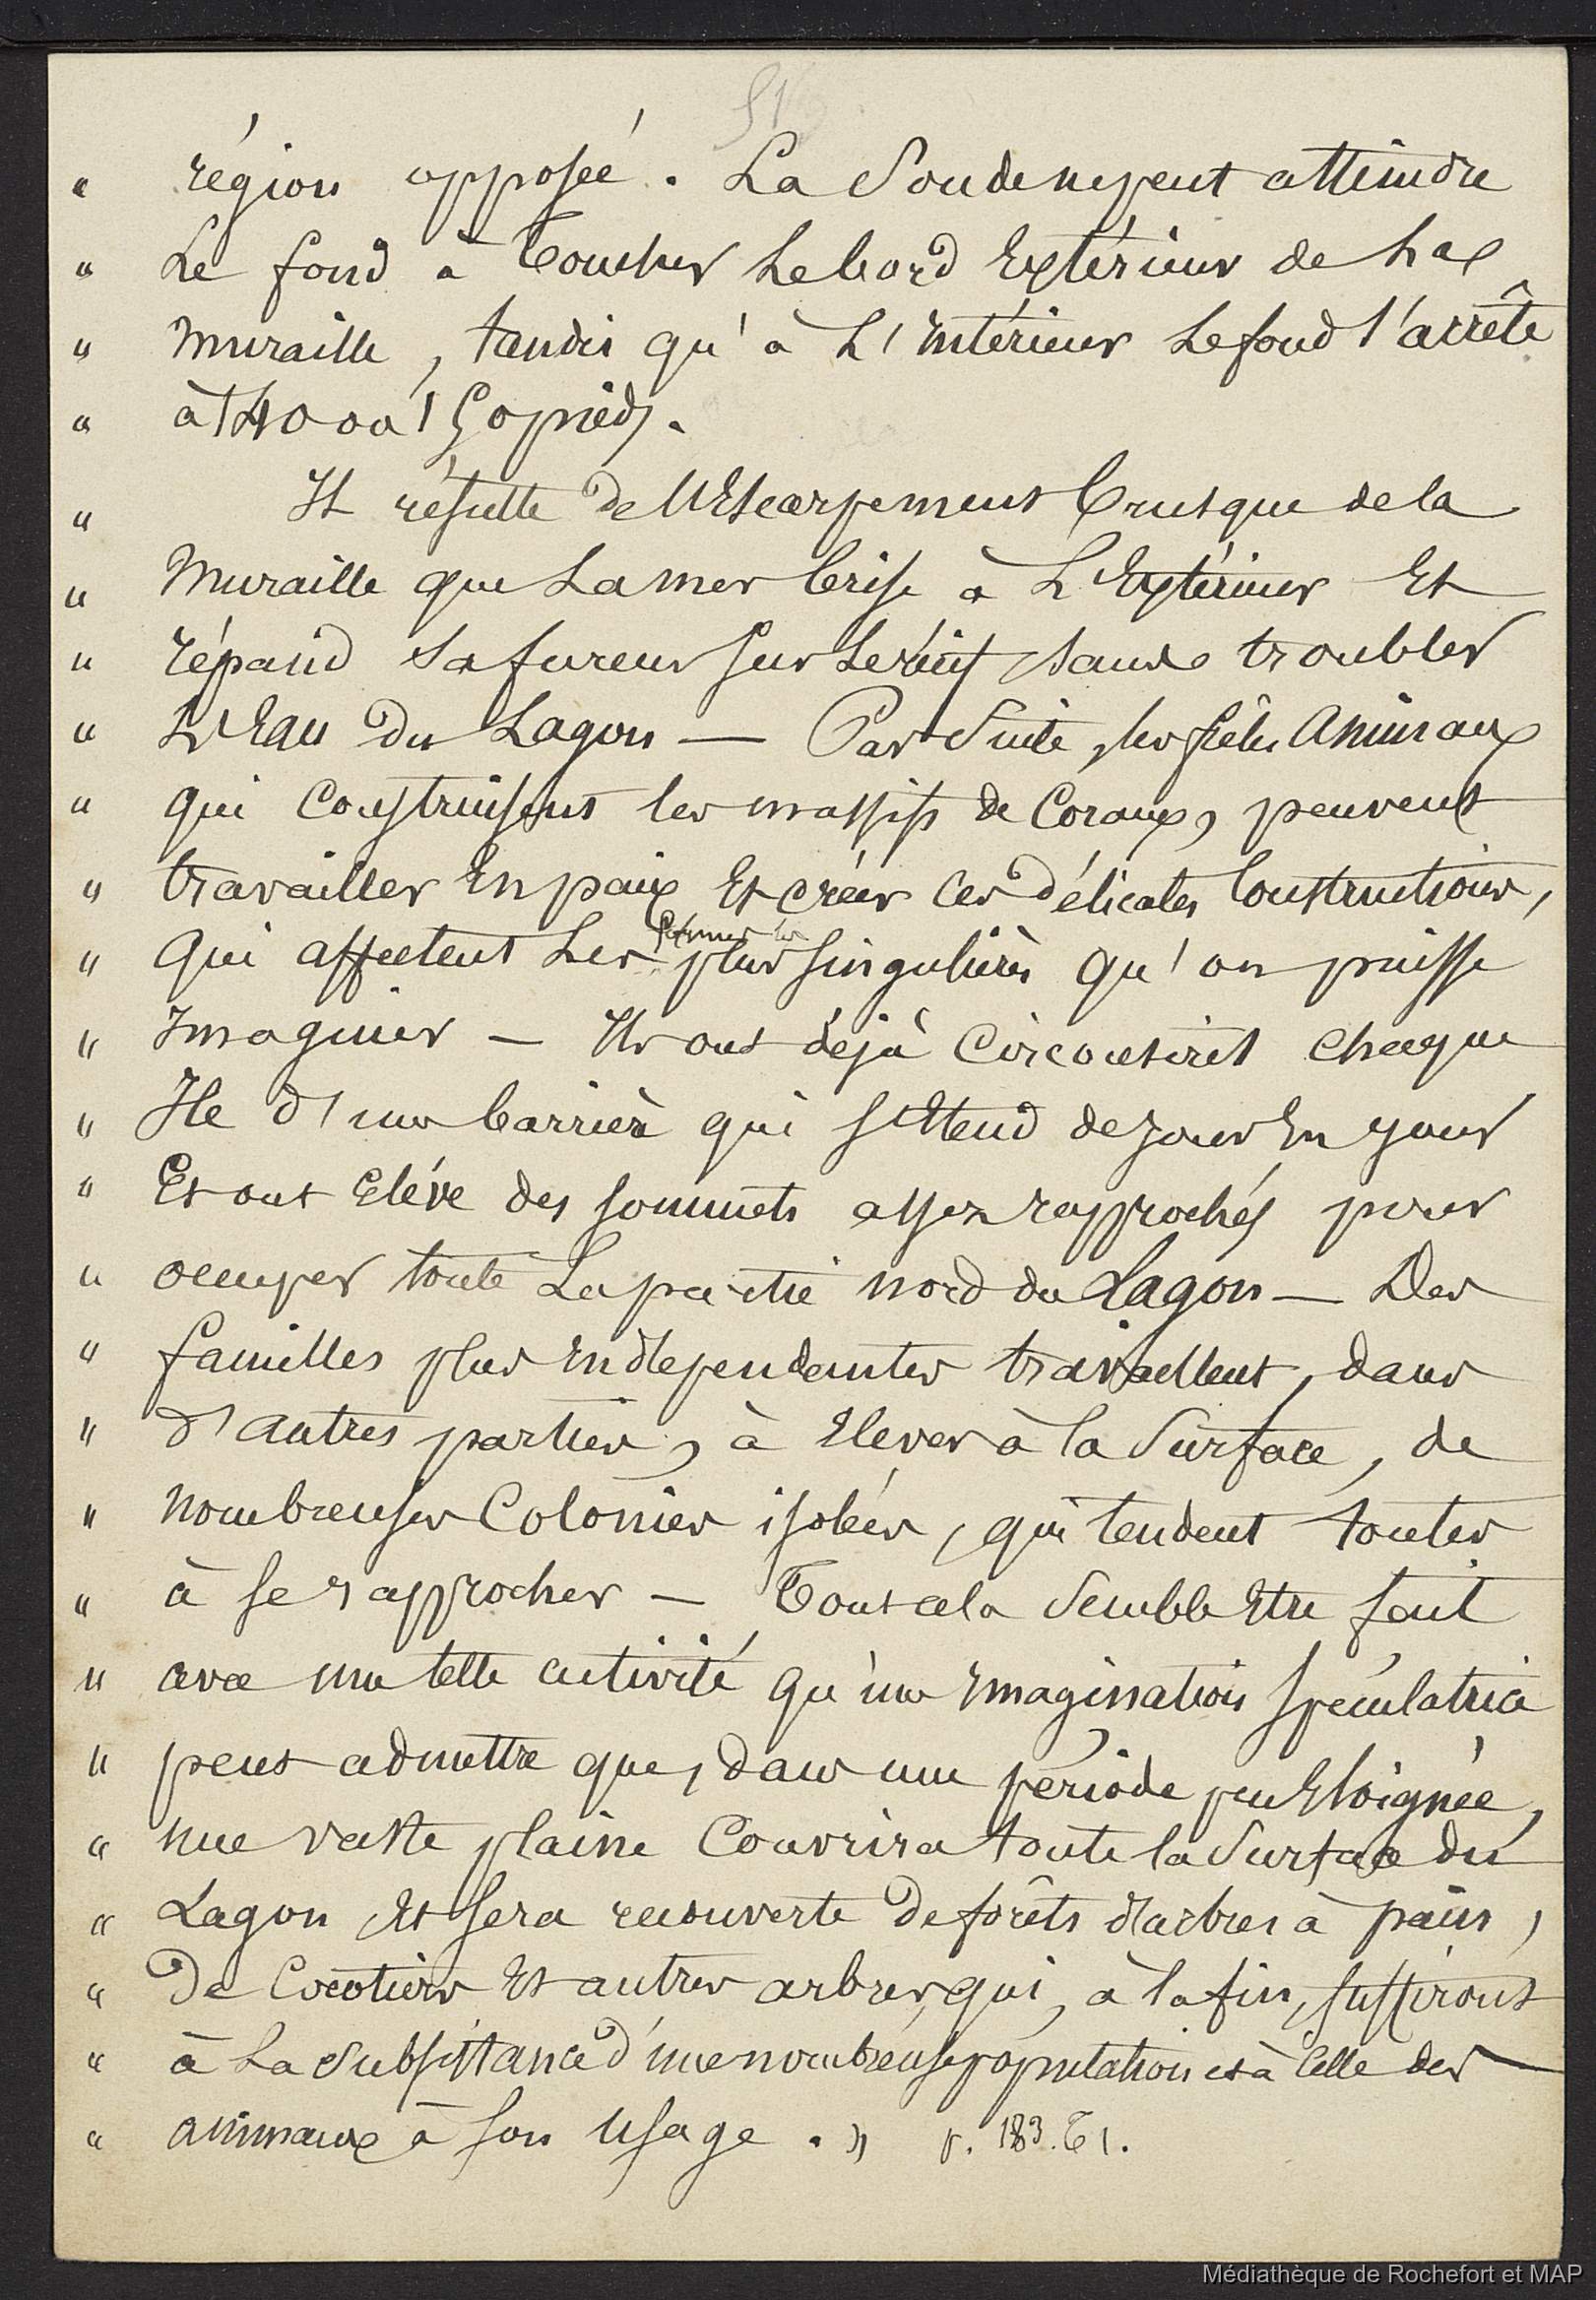 51
" région opposée. La Sonde ne peut atteindre
" Le fond à Toucher Le bord Extérieur de La
" Muraille, tandis qu'à L'Intérieur Le fond s'arrête
" à 140 ou 150 pieds.
" Il résulte de L'Escarpement Brusque de la
" Muraille que La mer brise à L'Extérieur Et
" répand sa fureur sur Le récif sans troubler
" L'Eau du Lagon — Par Suite, les frêles Animaux
" qui Construisent les massifs de Coraux, peuvent
" travailler En paix Et créer ces délicates Constructions,
" Qui affectent Les formes les plus Singulières qu'on puisse
" Imaginer — Ils ont déjà Circonscrit chaque
" Ile d'une barrière qui s'Etend de jour En jour
" Et ont Elévé des sommets assez rapprochés pour
" occuper toute La partie nord du Lagon — Des
" familles plus Indépendantes travaillent, dans
" d'autres parties, à Elever à la Surface, de
" nombreuses Colonies isolées, qui tendent toutes
" à se rapprocher — Tout cela Semble Etre fait
" avec une telle activité qu'une Imagination spéculatrice
" peut admettre que, dans une période peu Eloignée,
" une vaste plaine Couvrira toute la Surface du
" Lagon Et sera recouverte de forêts d'arbres à pain,
" De Cocotiers Et autres arbres, qui, à la fin, suffiront
" à La Subsistance d'une nombreuse population et à Celle des
" animaux à son Usage. » p. 183. T1.
Médiathèque de Rochefort et MAP